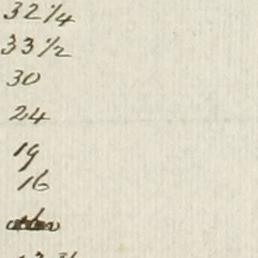 32 1/4
33 1/2
30
24
19
16